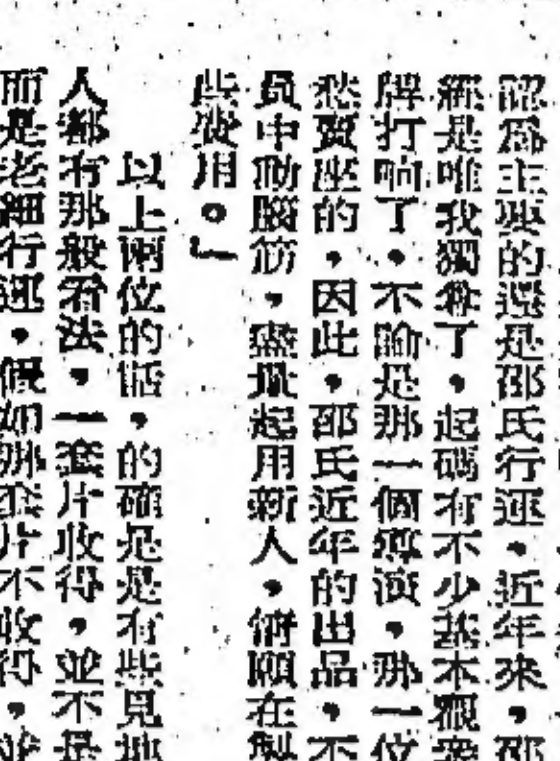 認爲主要的還是邵氏行運，近年來，邵
經是唯我獨尊了，起碼有不少基本觀衆
牌打响了，不論是那一個導演，那一位
愁賣座的，因此，邵氏近年的出品，不
員中動腦筋，盡量起用新人，情願在製
些費用。」
以上兩位的話，的確是是有些見地
人都有那般看法，一套片收得，並不是
而是老細行運，假如那套片不收得，並